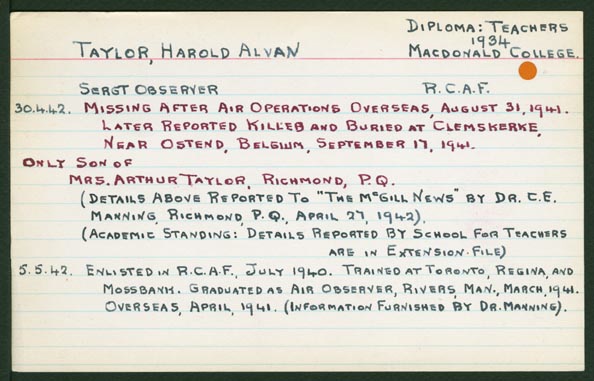 DIPLOMA: TEACHERS
1934
TAYLOR, HAROLD ALVAN MACDONALD COLLEGE.
SERGT OBSERVER R.C.A.F.
30.4.42. MISSING AFTER AIR OPERATIONS OVERSEAS, AUGUST 31, 1941.
LATER REPORTED KILLED AND BURIED AT CLEMSKERKE,
NEAR OSTEND, BELGIUM, SEPTEMBER 17, 1941.
ONLY SON OF
MRS. ARTHUR TAYLOR, RICHMOND, P.Q.
(DETAILS ABOVE REPORTED TO "THE McGILL NEWS" BY DR. C.E.
MANNING, RICHMOND, P.Q., APRIL 27, 1942).
(ACADEMIC STANDING: DETAILS REPORTED BY SCHOOL FOR TEACHERS
ARE IN EXTENSION FILE)
5.5.42. ENLISTED IN R.C.A.F., JULY 1940. TRAINED AT TORONTO, REGINA, AND
MOSSBANK. GRADUATED AS AIR OBSERVER, RIVERS, MAN., MARCH, 1941.
OVERSEAS, APRIL, 1941. (INFORMATION FURNISHED BY DR. MANNING).